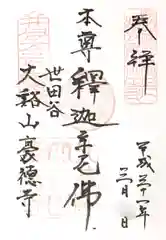 奉拝
平成三十一年
月
日
本尊
釋迦牟尼佛
世田谷
大谿山豪德寺